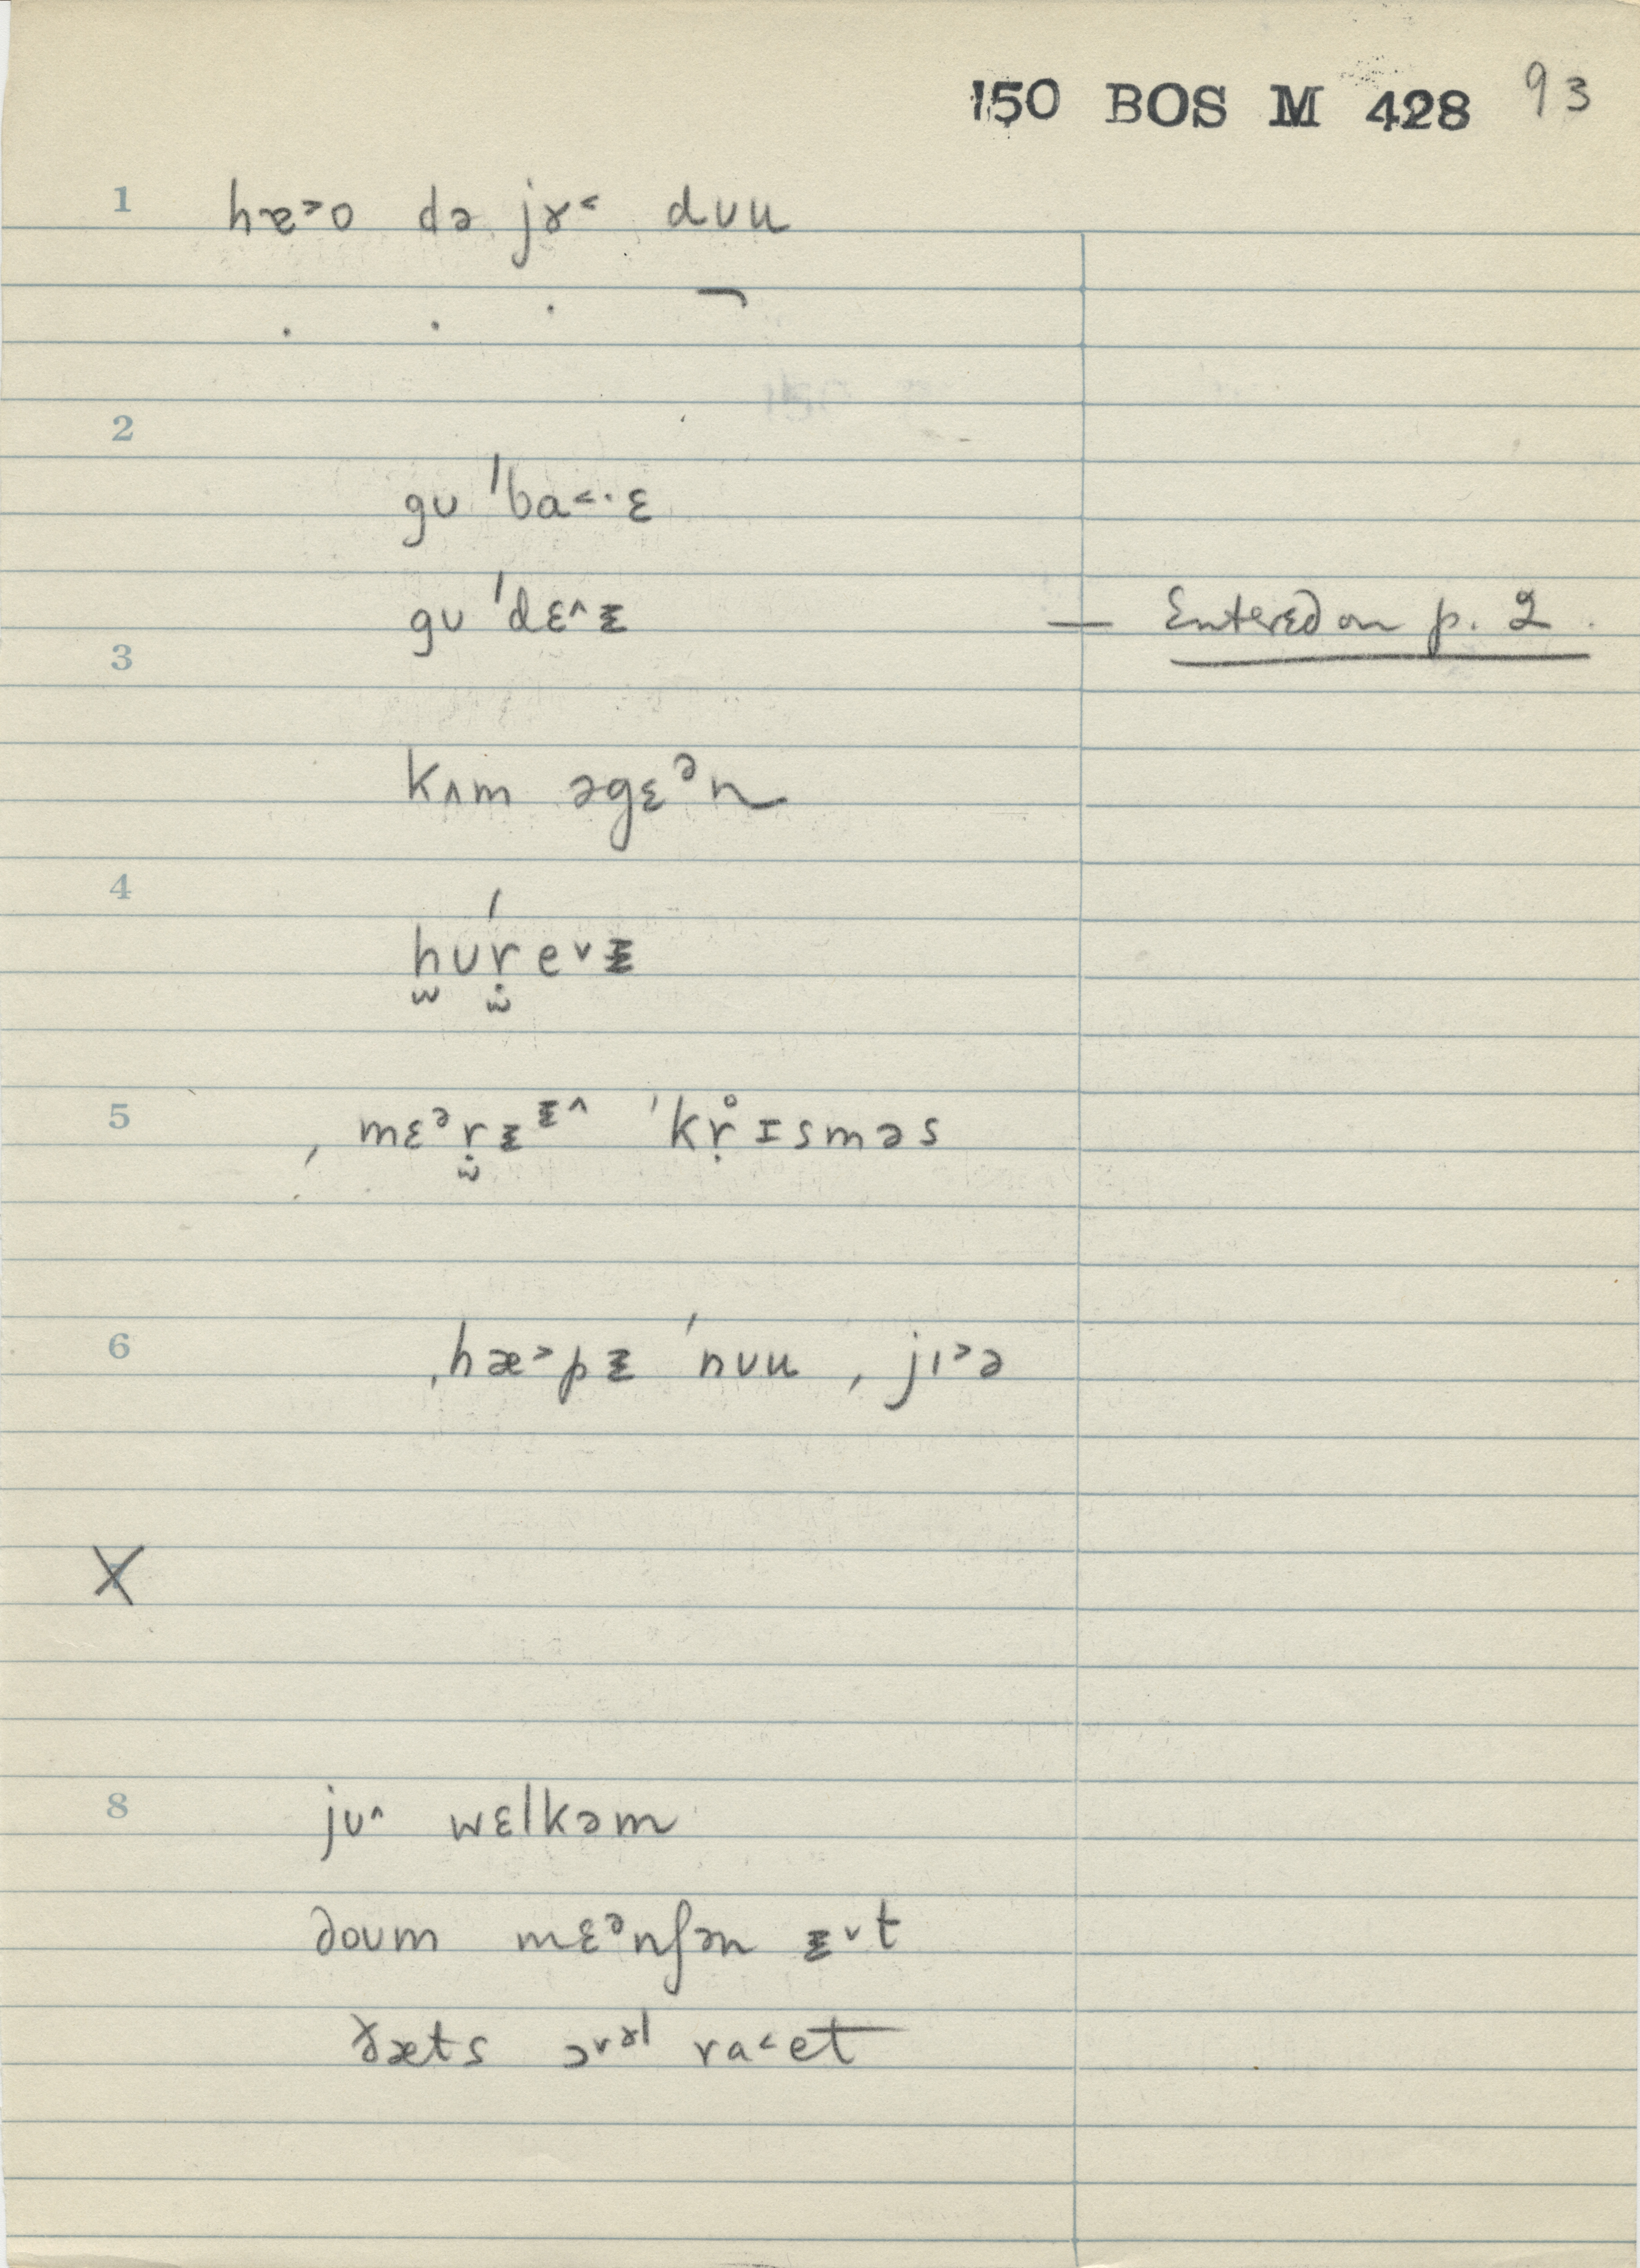 150 BOS M 428 93
1 hæ˃o də jɤ˂ dʊu
2
gʊ ˈba˂·ɛ
gʊ ˈdɛ˄ᵻ — Entered on p. 2.
3
kʌm əgɛᵊn
4
hʊˈre˅ᵻ
5 ˌmɛᵊrᵻᵻ˄ ˈkr̥ɪsməs
6 ˌhæ˃pᵻ ˈnʊu ˌjɪ˃ə
X
8 jʊ˄ wɛlkəm
doʊm mɛᵊnʃən ᵻ˅t
ðæts ɔ˅ɤl ra˂et